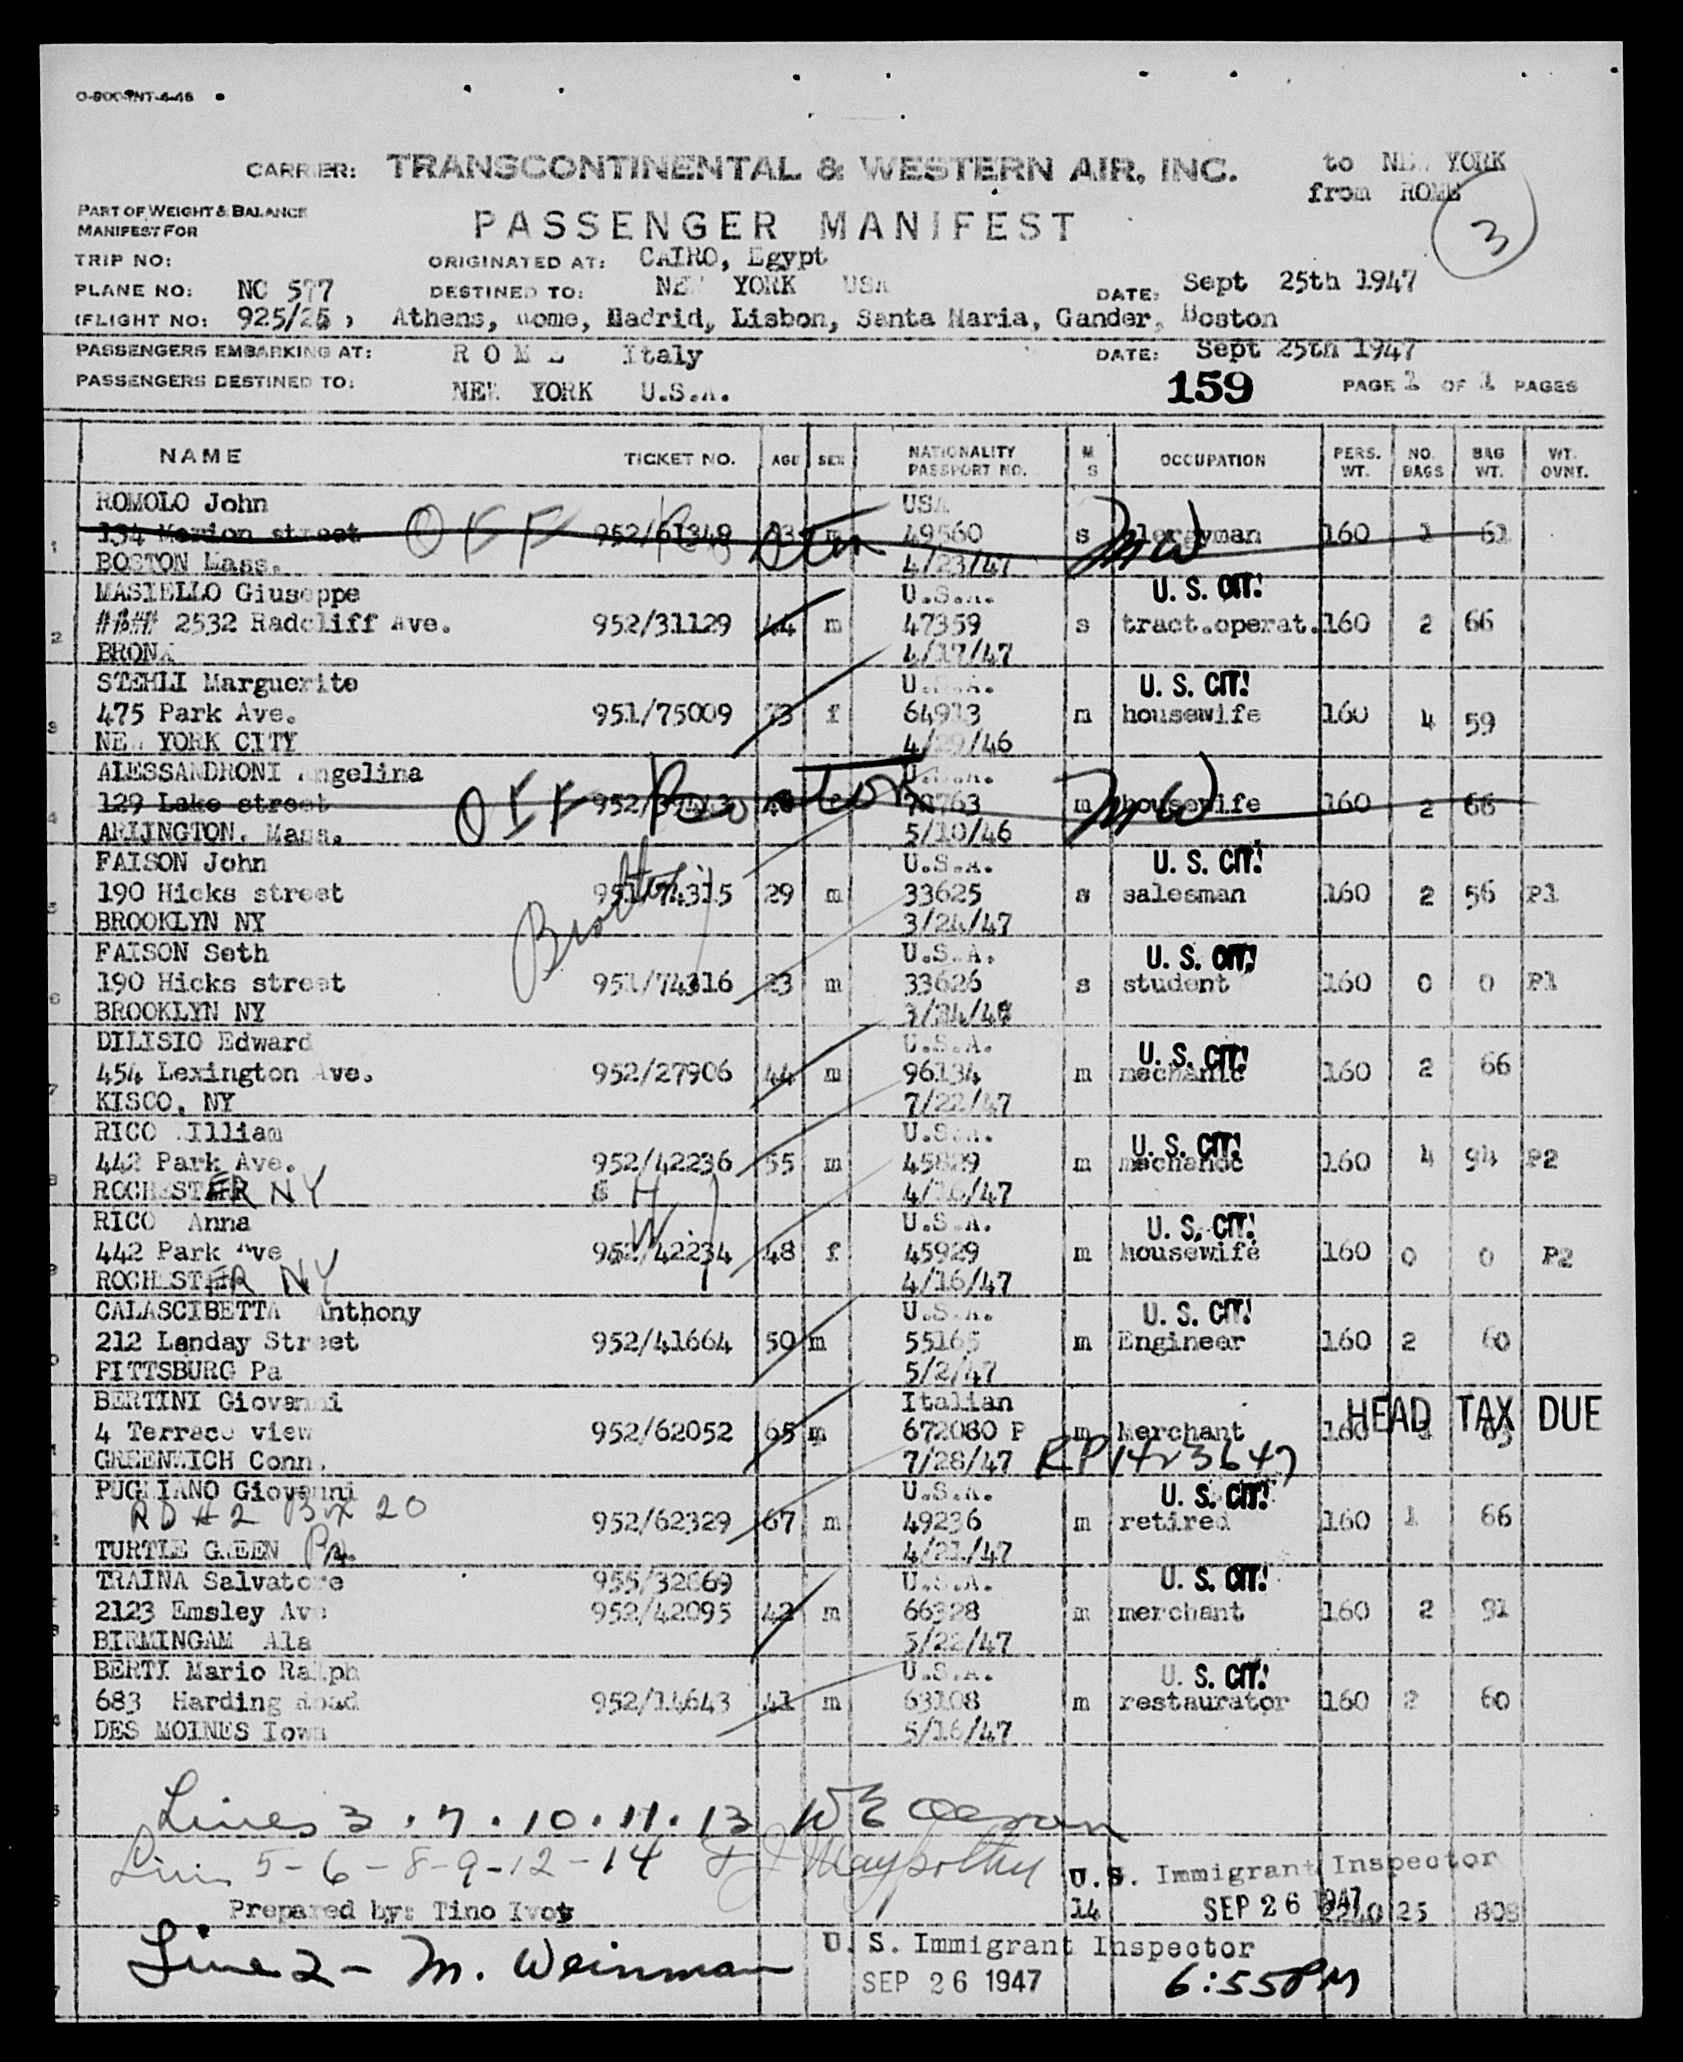 CARRIER: TRANSCONTINENTAL & WESTERN AIR, INC. to NEW YORK
from ROME
3
PART OF WEIGHT & BALANCE
MANIFEST FOR
PASSENGER MANIFEST
TRIP NO: ORIGINATED AT: CAIRO, Egypt
PLANE NO: NC 577 DESTINED TO: NEW YORK USA DATE: Sept 25th 1947
(FLIGHT NO: 925/25 ) Athens, Rome, Madrid, Lisbon, Santa Maria, Gander, Boston
PASSENGERS EMBARKING AT: R O M E Italy DATE: Sept 25th 1947
PASSENGERS DESTINED TO: NEW YORK U.S.A. 159 PAGE 1 OF 1 PAGES
NAME TICKET NO. AGE SEX NATIONALITY PASSPORT NO. M S OCCUPATION PERS. WT. NO. BAGS BAG WT. WT. OVNT.
ROMOLO John USA
1 134 Merion street OFF Boston 952/61349 m 49560 s clergyman MW 160 61
BOSTON Mass. 4/23/47
MASIELLO Giuseppe U.S.A. U. S. CIT!
2 2532 Radcliff Ave. 952/31129 44 m 47359 s tract.operat. 160 2 66
BRONX 4/17/47
STEHLI Marguerite U.S.A. U. S. CIT!
3 475 Park Ave. 951/75009 73 f 64913 m housewife 160 4 59
NEW YORK CITY 4/29/46
ALESSANDRONI Angelina U.S.A.
4 129 Lake street OFF Boston m housewife MW 160 2 66
ARLINGTON, Mass. 5/10/46
FAISON John U.S.A. U. S. CIT!
5 190 Hicks street 951/74315 29 m 33625 s salesman 160 2 56 P1
BROOKLYN NY 3/24/47
FAISON Seth U.S.A. U. S. CIT!
6 190 Hicks street 951/74316 23 m 33626 s student 160 0 0 P1
BROOKLYN NY
DILISIO Edward U.S.A. U. S. CIT!
7 454 Lexington Ave. 952/27906 44 m 96134 m mechanic 160 2 66
KISCO, NY 7/22/47
RICO William U.S.A. U. S. CIT!
8 442 Park Ave. 952/42236 55 m m 160 4 94 P2
ROCHESTER NY H 4/16/47
RICO Anna W U.S.A. U. S. CIT!
9 442 Park Ave 952/42234 48 f 45929 m housewife 160 0 0 P2
ROCHESTER NY 4/16/47
CALASCIBETTA Anthony U.S.A. U. S. CIT!
212 Landay Street 952/41664 50 m 55165 m Engineer 160 2 60
PITTSBURG Pa 5/2/47
BERTINI Giovanni Italian HEAD TAX DUE
4 Terrace view 952/62052 65 m 672080 P m Merchant 160
GREENWICH Conn. 7/28/47 RP1423647
PUGLIANO Giovanni U.S.A. U. S. CIT!
RD #2 Box 20 952/62329 67 m 49236 m retired 160 1 66
TURTLE GREEN Pa. 4/21/47
TRAINA Salvatore 955/32669 U.S.A. U. S. CIT!
2123 Emsley Ave 952/42095 42 m 66328 m merchant 160 2 91
BIRMINGAM Ala 5/22/47
BERTI Mario Ralph U.S.A. U. S. CIT!
683 Harding Road 952/14643 41 m 63108 m restaurator 160 2 60
DES MOINES Iowa 5/16/47
Lines 3 . 7 . 10 . 11 . 13
5 - 6 - 8 - 9 - 12 - 14
U.S. Immigrant Inspector
Prepared by: Tino 14 SEP 26 1947 2240 25 808
U. S. Immigrant Inspector
Line 2 - M. Weinman SEP 26 1947 6:55 PM